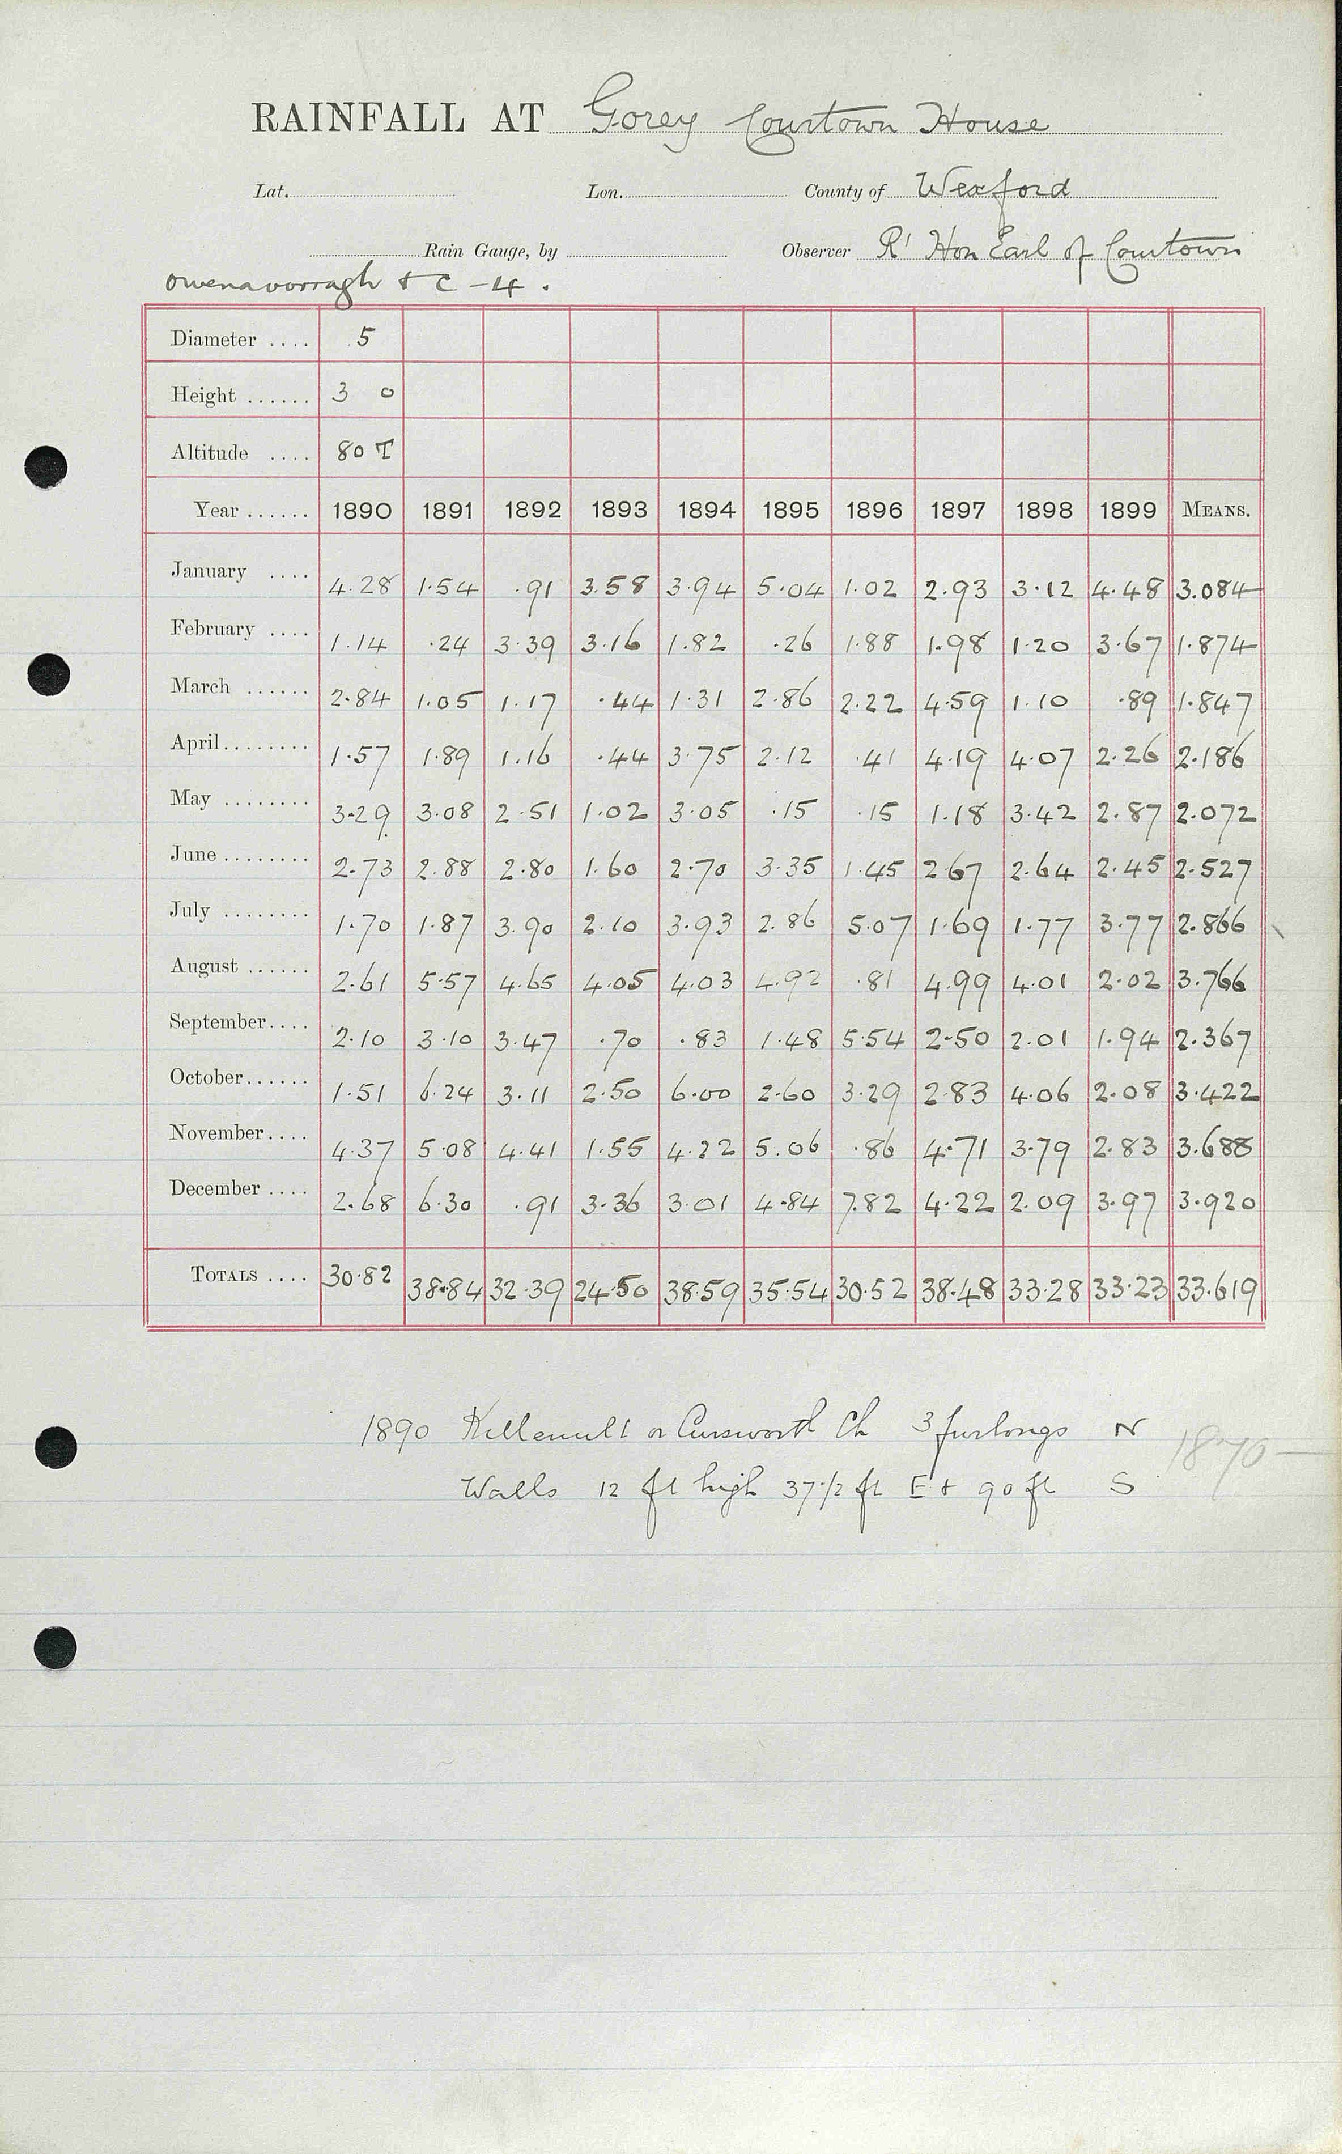 RAINFALL AT Gorey Courtown House
Lat. Lon. County of Wexford
Rain Gauge, by Observer Rt Hon Earl of Courtown
Owenavorragh & C - 4.
Diameter .... 5
Height ...... 3 0
Altitude .... 80 T
Year ...... 1890 1891 1892 1893 1894 1895 1896 1897 1898 1899 MEANS.
January .... 4.28 1.54 .91 3.58 3.94 5.04 1.02 2.93 3.12 4.48 3.084
February .... 1.14 .24 3.39 3.16 1.82 .26 1.88 1.98 1.20 3.67 1.874
March ...... 2.84 1.05 1.17 .44 1.31 2.86 2.22 4.59 1.10 .89 1.847
April........ 1.57 1.89 1.16 .44 3.75 2.12 .41 4.19 4.07 2.26 2.186
May ........ 3.29 3.08 2.51 1.02 3.05 .15 .15 1.18 3.42 2.87 2.072
June ........ 2.73 2.88 2.80 1.60 2.70 3.35 1.45 2.67 2.64 2.45 2.527
July ........ 1.70 1.87 3.90 2.10 3.93 2.86 5.07 1.69 1.77 3.77 2.866
August ...... 2.61 5.57 4.65 4.05 4.03 4.92 .81 4.99 4.01 2.02 3.766
September.... 2.10 3.10 3.47 .70 .83 1.48 5.54 2.50 2.01 1.94 2.367
October...... 1.51 6.24 3.11 2.50 6.00 2.60 3.29 2.83 4.06 2.08 3.422
November.... 4.37 5.08 4.41 1.55 4.22 5.06 .86 4.71 3.79 2.83 3.688
December .... 2.68 6.30 .91 3.36 3.01 4.84 7.82 4.22 2.09 3.97 3.920
TOTALS .... 30.82 38.84 32.39 24.50 38.59 35.54 30.52 38.48 33.28 33.23 33.619
1890 or Ch 3 furlongs N
1870—
Walls 12 ft high 37 1/2 ft E & 90 ft S